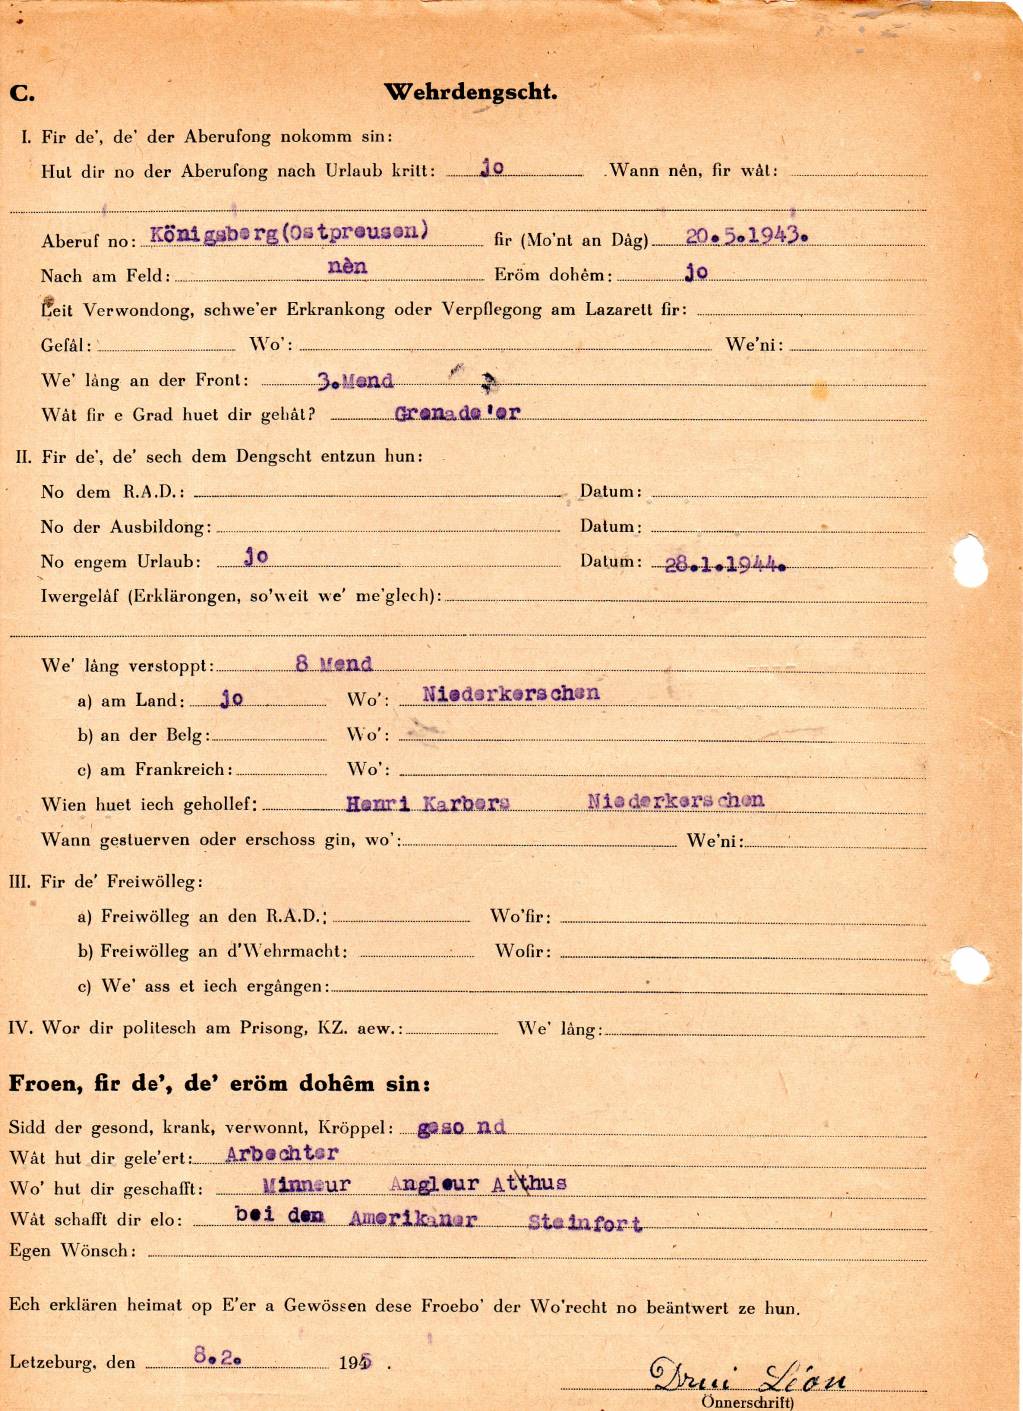 C. Wehrdengscht.
I. Fir de', de' der Aberufong nokomm sin:
Hut dir no der Aberufong nach Urlaub kritt: jo Wann nên, fir wåt:
Aberuf no: Königsberg(Ostpreusen) fir (Mo'nt an Dåg) 20.5.1943.
Nach am Feld: nèn Eröm dohêm: jo
Leit Verwondong, schwe'er Erkrankong oder Verpflegong am Lazarett fir:
Gefål: Wo': We'ni:
We' lång an der Front: 3.Mend
Wåt fir e Grad huet dir gehåt? Grenade'er
II. Fir de', de' sech dem Dengscht entzun hun:
No dem R.A.D.: Datum:
No der Ausbildong: Datum:
No engem Urlaub: jo Datum: 28.1.1944.
Iwergelåf (Erklärongen, so'weit we' me'glech):
We' lång verstoppt: 8 Mend
a) am Land: jo Wo': Niederkerschen
b) an der Belg: Wo':
c) am Frankreich: Wo':
Wien huet iech gehollef: Henri Karbers Niederkerschen
Wann gestuerven oder erschoss gin, wo': We'ni:
III. Fir de' Freiwölleg:
a) Freiwölleg an den R.A.D.: Wo'fir:
b) Freiwölleg an d'Wehrmacht: Wofir:
c) We' ass et iech ergången:
IV. Wor dir politesch am Prisong, KZ. aew.: We' lång:
Froen, fir de', de' eröm dohêm sin:
Sidd der gesond, krank, verwonnt, Kröppel: gesond
Wåt hut dir gele'ert: Arbechter
Wo' hut dir geschafft: Minneur Angleur Atthus
Wåt schafft dir elo: bei den Amerikaner Steinfort
Egen Wönsch:
Ech erklären heimat op E'er a Gewössen dese Froebo' der Wo'recht no beäntwert ze hun.
Letzeburg, den 8.2. 1945.
Léon
Önnerschrift)